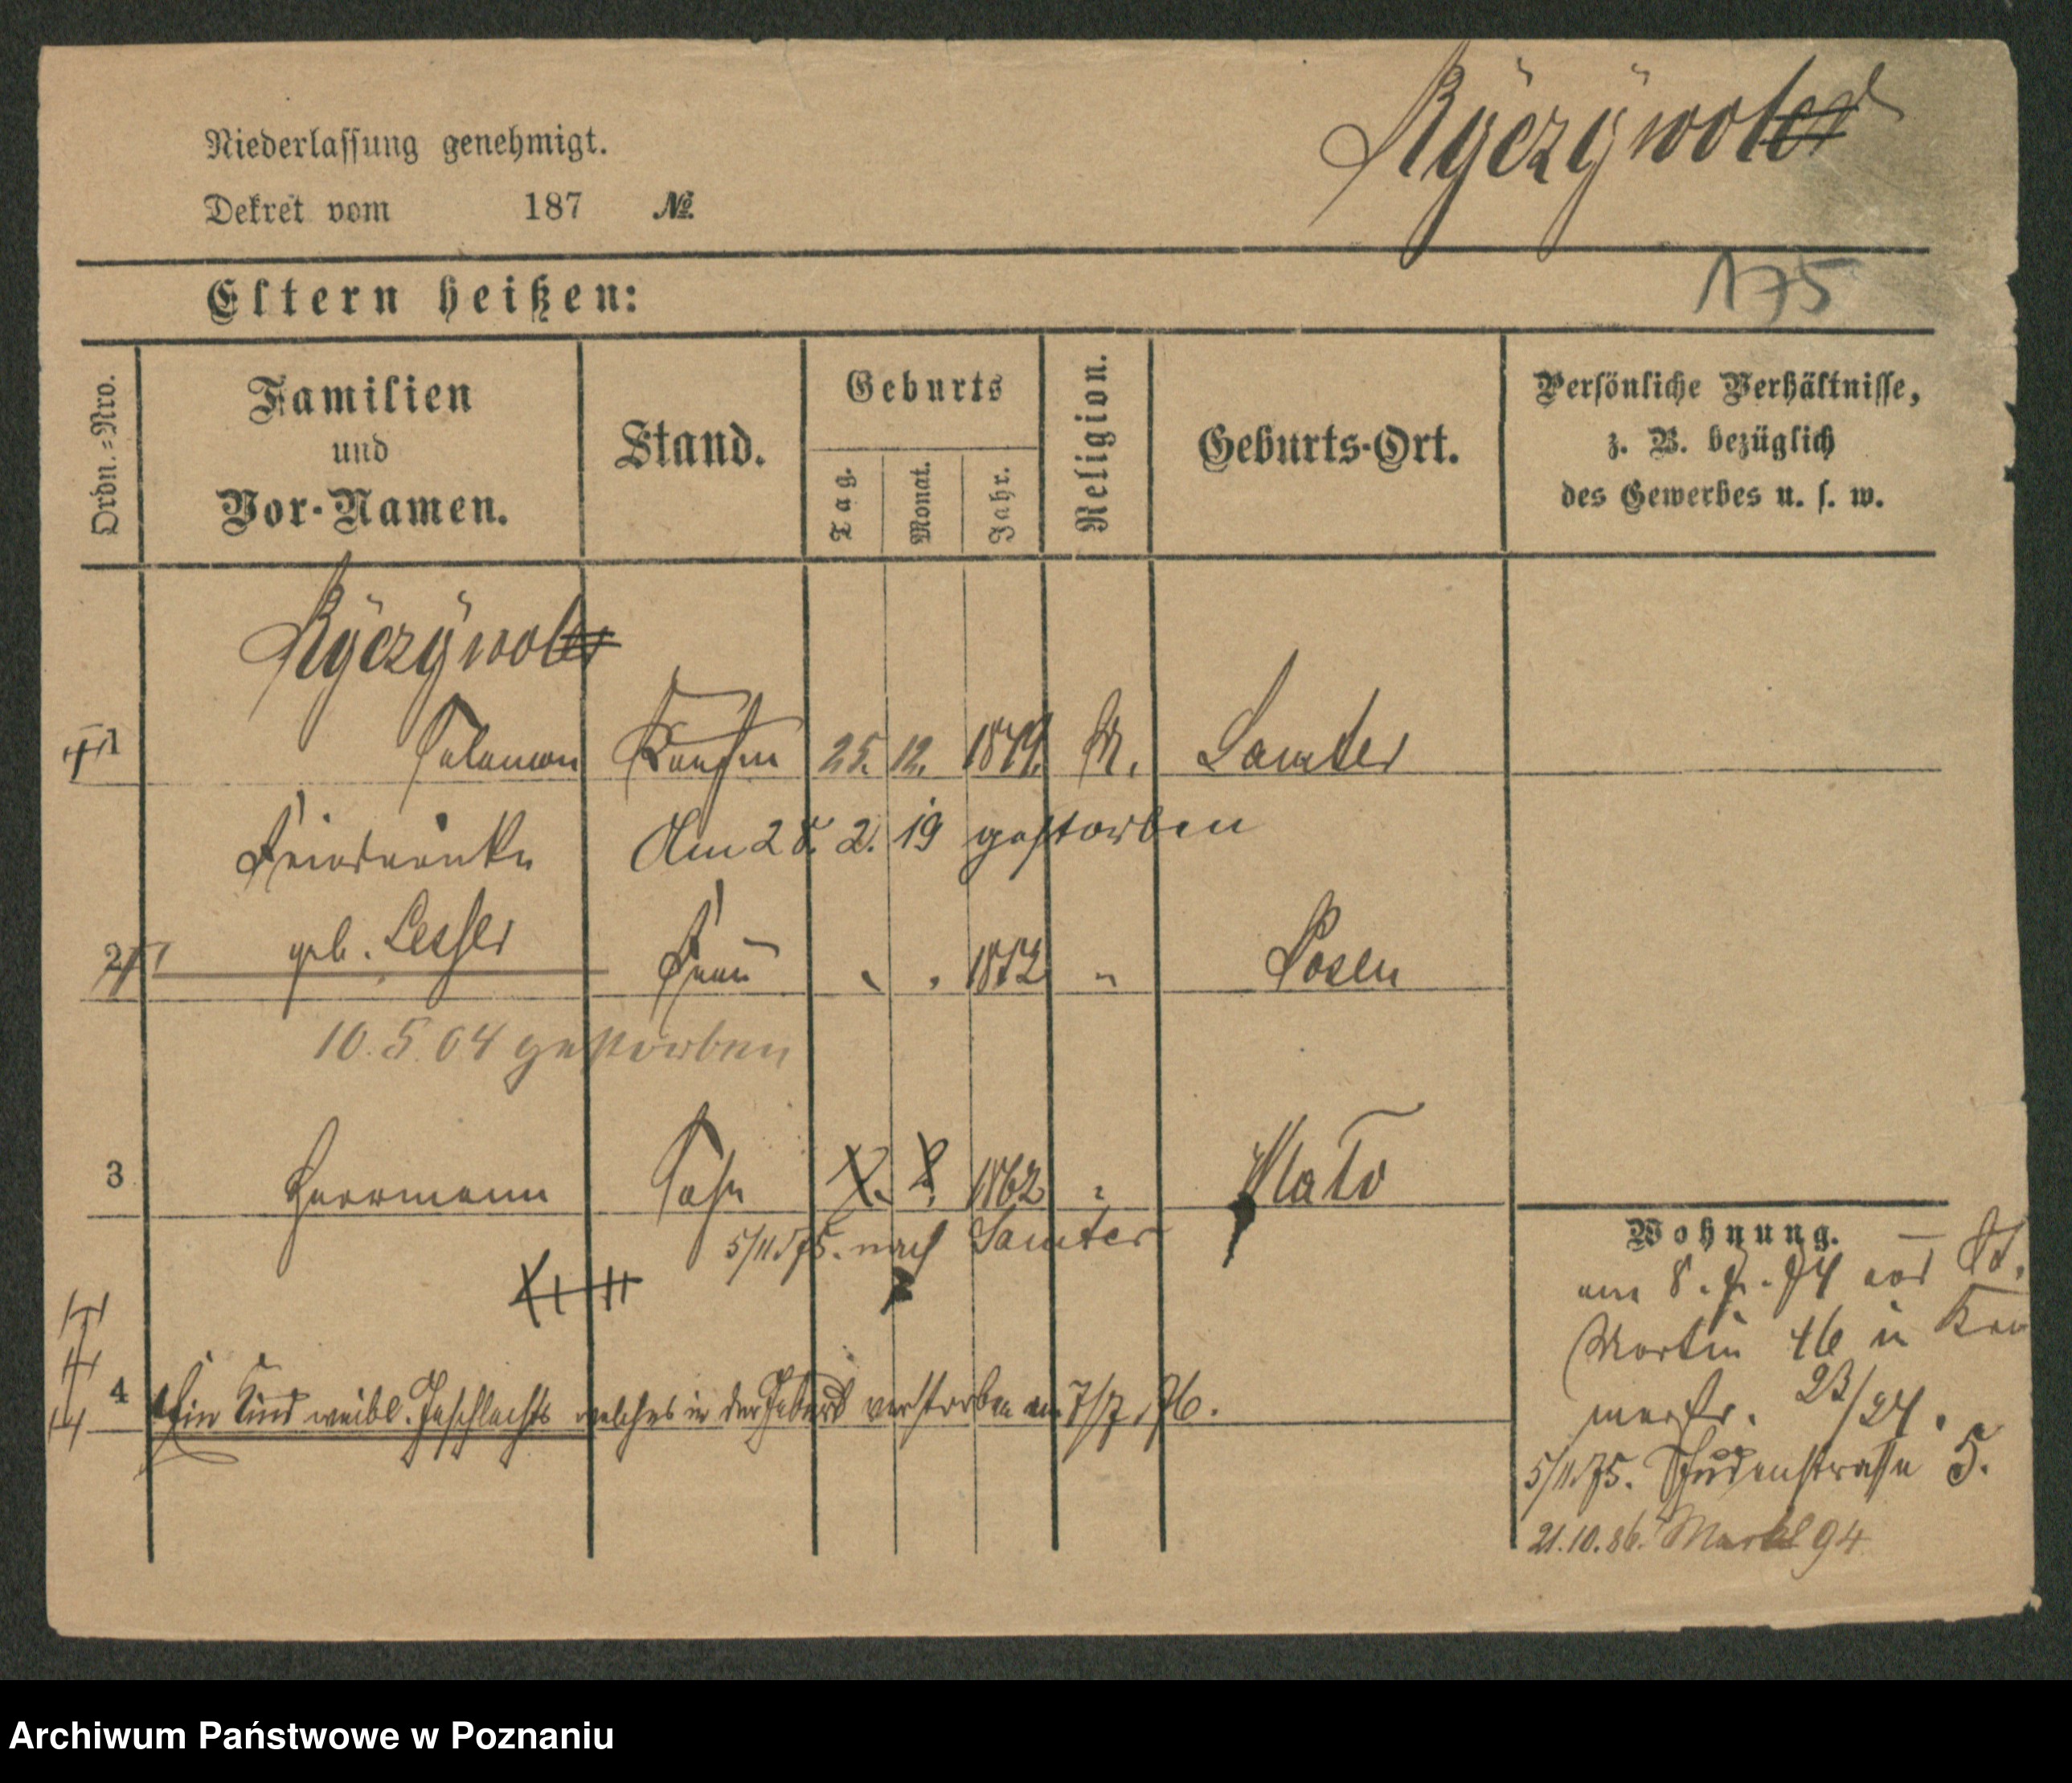 Niederlassung genehmigt.
Dekret vom 187 №
Ryczywoler
175
Eltern heißen:
Ordn.-Nro.
Familien
und
Vor-Namen.
Stand.
Geburts
Tag.
Monat.
Jahr.
Religion.
Geburts-Ort.
Persönliche Verhältnisse,
z. B. bezüglich
des Gewerbes u. s. w.
Ryczywoler
1 Salomon Kaufm 25. 12. M. Samter
Am 28. 2. 19 gestorben
Friederike
2 geb. Lesser Frau " Posen
10. 5. 04 gestorben
3 Herrmann Sohn 1862 "
5/11 75. nach Samter
4 Ein Kind weibl. Geschlechts welches in der Geburt verstorben am 7/7. 76.
Wohnung.
am 8. 74 St.
Martin 46 in
23/24.
5/11 75. Judenstrasse 5.
21.10.86. Markt 94
Archiwum Państwowe w Poznaniu